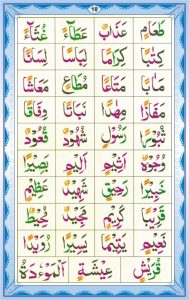 18
طَعَامٌ عَذَابٌ عَطَآءً غُثَآءً
كِتٰبًا كِرَامًا لِبَاسًا لِسَانًا
مَاٰبًا مَتَاعًا مُطَاعٍ مَعَاشًا
مَفَازًا مِهٰدًا نَبَاتًا وِفَاقًا
ثُبُوْرًا رَسُوْلٍ شُهُوْدٌ قُعُوْدٌ
وُجُوْهٌ اَثِيْمٍ اَلِيْمٍ بَصِيْرًا
خَبِيْرًا رَحِيْقٍ شَهِيْدٌ عَظِيْمٍ
قَرِيْبًا كَرِيْمٍ مَجِيْدٌ مُحِيْطٌ
نَعِيْمٍ يَتِيْمًا يَسِيْرًا رُوَيْدًا
قُرَيْشٍ عِيْشَةٍ اَلْمَوْءٗدَةُ